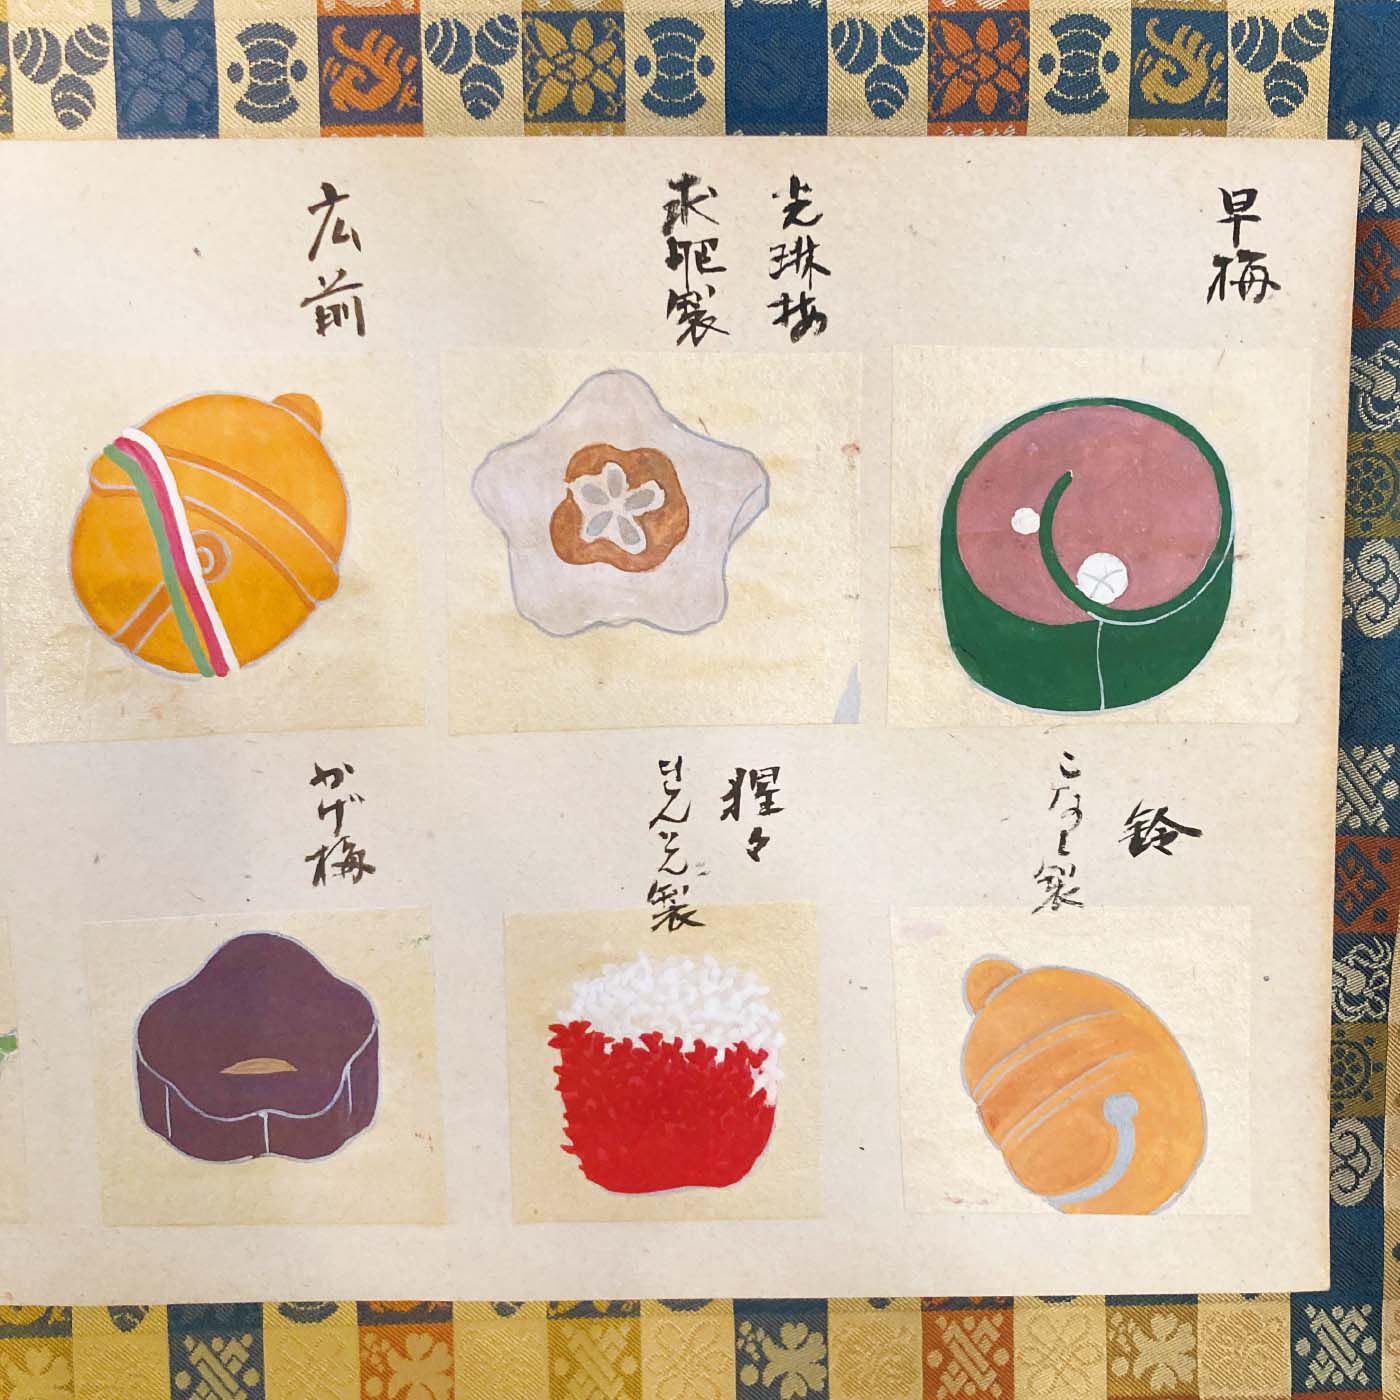 早梅
光琳梅
求肥製
広前
鈴
こなし製
猩々
きんとん製
かげ梅